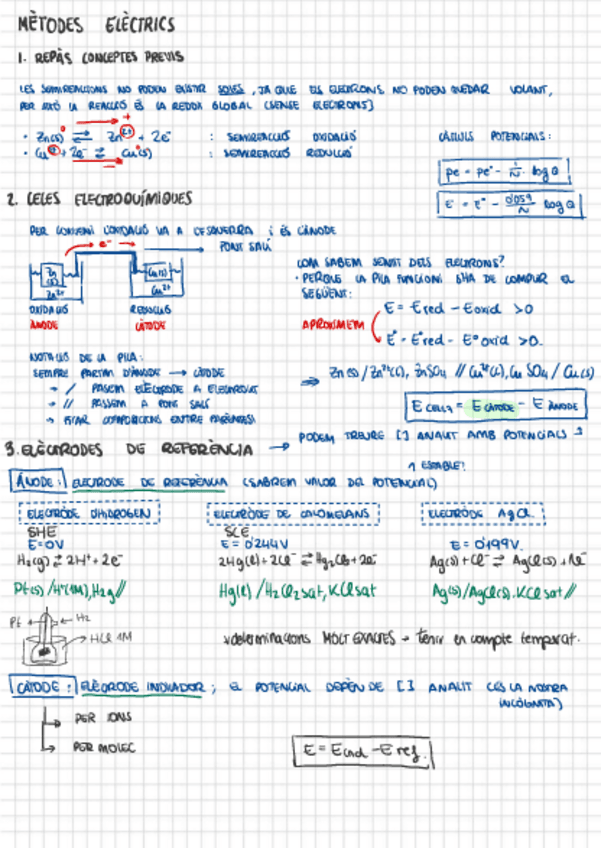 MÈTODES ELÈCTRICS
1. REPÀS CONCEPTES PREVIS
LES SEMIREACCIONS NO PODEN EXISTIR SOLES, JA QUE ELS ELECTRONS NO PODEN QUEDAR VOLANT,
PER AIXÒ LA REACCIÓ ÉS LA REDOX GLOBAL (SENSE ELECTRONS)
· Zn(s) ⇄ Zn²⁺ + 2e⁻ : SEMIREACCIÓ OXIDACIÓ
· Cu²⁺ + 2e⁻ ⇄ Cu(s) : SEMIREACCIÓ REDUCCIÓ
CÀLCULS POTENCIALS:
pe = pe° - 1/N · log Q
E = E° - 0'059/N log Q
2. CEL·LES ELECTROQUÍMIQUES
PER CONVENI L'OXIDACIÓ VA A L'ESQUERRA I ÉS L'ÀNODE
e⁻
→ PONT SALÍ
Zn (s)
Zn²⁺
Cu(s)
Cu²⁺
OXIDACIÓ
ÀNODE
REDUCCIÓ
CÀTODE
COM SABEM SENTIT DELS ELECTRONS?
· PERQUÈ LA PILA FUNCIONI S'HA DE COMPLIR EL
SEGÜENT:
E = E red - E oxid > 0
APROXIMEM
E° = E°red - E°oxid > 0.
NOTACIÓ DE LA PILA:
SEMPRE PARTIM D'ÀNODE → CÀTODE
→ / PASSEM ELÈCTRODE A ELECTRÒLIT
→ // PASSEM A PONT SALÍ
→ FICAR COMPOSICIONS ENTRE PARÈNTESI
⇒ Zn (s) / Zn²⁺(c), ZnSO₄ // Cu²⁺(c), CuSO₄ / Cu(s)
E CEL·LA = E CÀTODE - E ÀNODE
3. ELÈCTRODES DE REFERÈNCIA → PODEM TREURE [] ANALIT AMB POTENCIALS
↑ ESTABLE!
ÀNODE: ELECTRODE DE REFERÈNCIA (SABREM VALOR DEL POTENCIAL)
ELECTRÒDE D'HIDROGEN
SHE
E = 0V
H₂(g) ⇄ 2H⁺ + 2e⁻
Pt(s) / H⁺(1M), H₂g //
Pt
H₂
→ HCl 1M
ELECTRÒDE DE CALOMELANS
SCE
E = 0'244V
2Hg(l) + 2Cl⁻ ⇄ Hg₂Cl₂ + 2e⁻
Hg(l) / H₂Cl₂ sat, KCl sat
ELECTRÒDE AgCl
E = 0'199V
Ag(s) + Cl⁻ ⇄ AgCl(s) + 1e⁻
Ag(s) / AgCl(s), KCl sat //
*determinacions MOLT EXACTES → tenir en compte temperat.
CÀTODE: ELÈCTRODE INDICADOR; EL POTENCIAL DEPÈN DE [] ANALIT (ÉS LA NOSTRA
INCÒGNITA)
→ PER IONS
→ PER MOLEC
E = E ind - E ref.